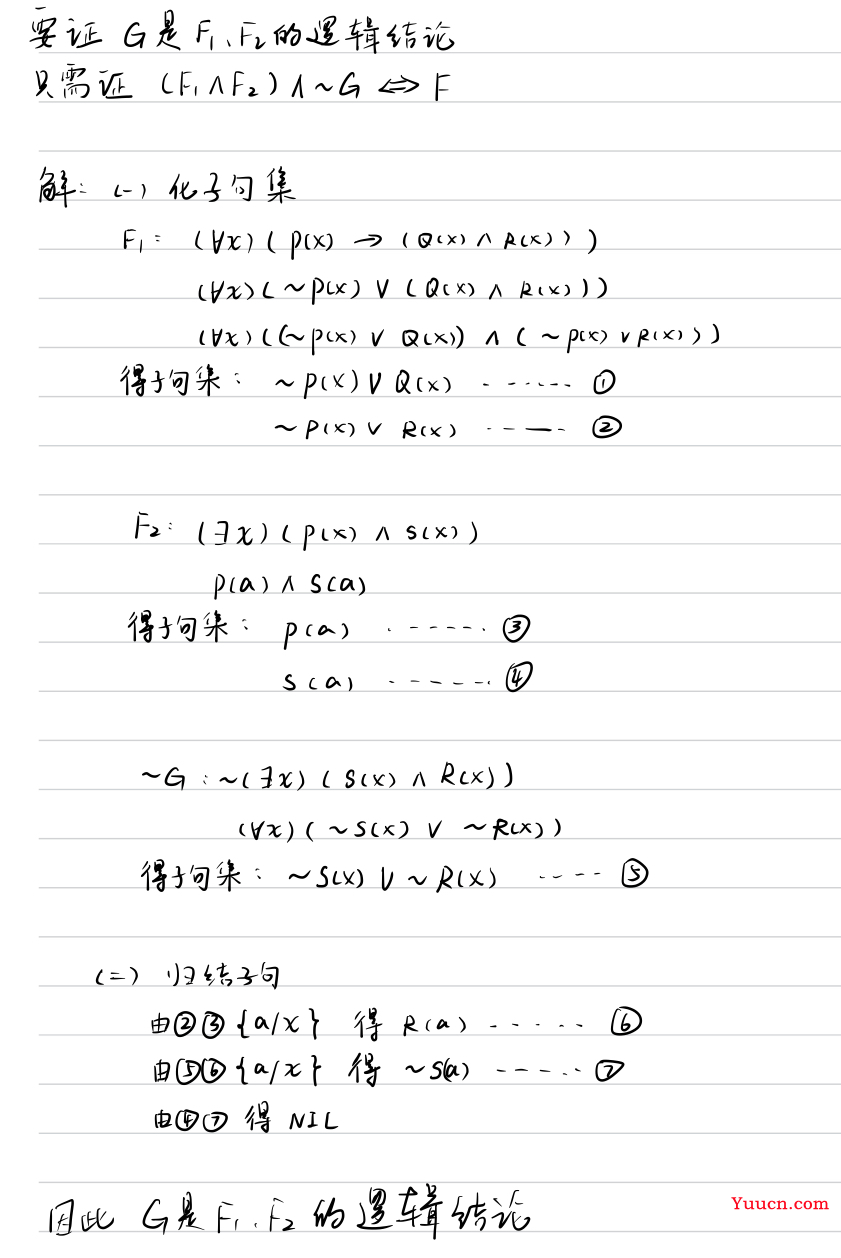 要证 G是 F₁、F₂的逻辑结论
只需证 (F₁∧F₂)∧~G ⇔ F
解: (一) 化子句集
F₁: (∀x)(P(x) → (Q(x) ∧ R(x)))
(∀x)(~P(x) ∨ (Q(x) ∧ R(x)))
(∀x)((~P(x) ∨ Q(x)) ∧ (~P(x) ∨ R(x)))
得子句集: ~P(x) ∨ Q(x) ------ ①
~P(x) ∨ R(x) ------ ②
F₂: (∃x)(P(x) ∧ S(x))
P(a) ∧ S(a)
得子句集: P(a) ------ ③
S(a) ------ ④
~G: ~(∃x)(S(x) ∧ R(x))
(∀x)(~S(x) ∨ ~R(x))
得子句集: ~S(x) ∨ ~R(x) ---- ⑤
(二) 归结子句
由②③{a/x} 得 R(a) ------ ⑥
由⑤⑥{a/x} 得 ~S(a) ------ ⑦
由④⑦ 得 NIL
因此 G是 F₁、F₂ 的逻辑结论
Yuucn.com